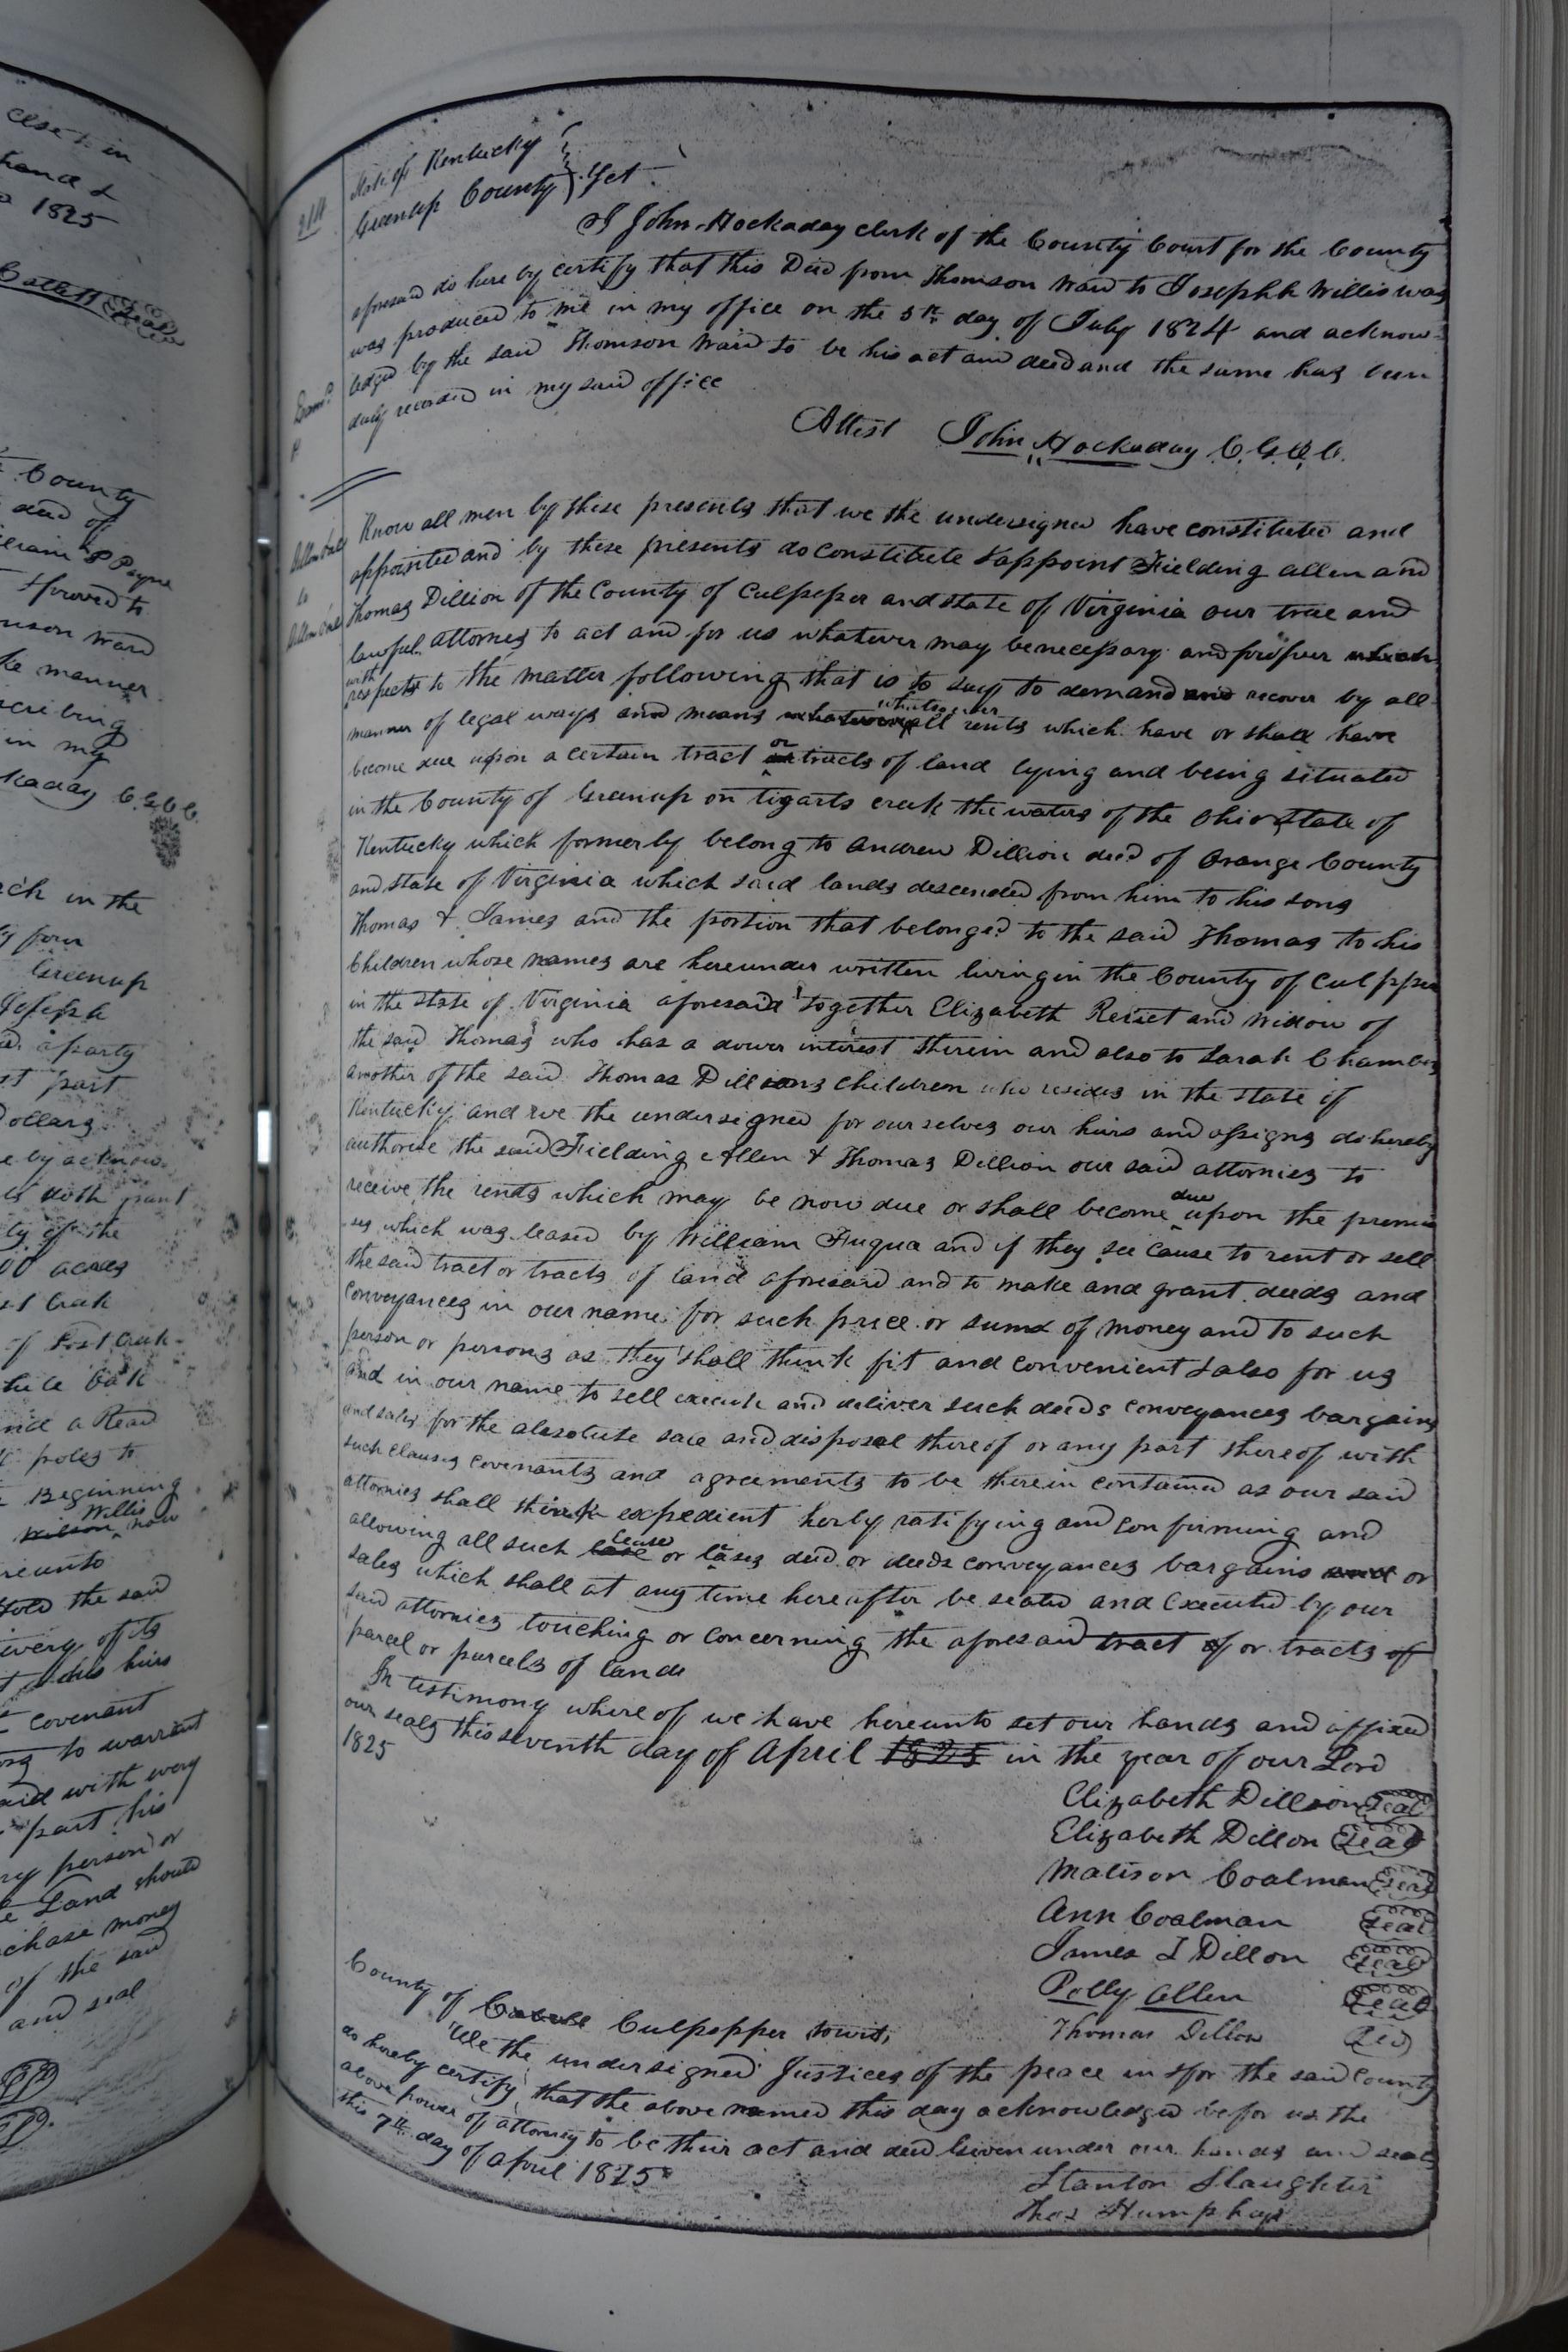 else to in
hand &
1825
County
deed of
Payne
proved to
Ward
manner
scribing
in my
C.G.C.C.
in the
four
Greenup
Joseph
a party
part
Dollars
by acknow
doth grant
ty of the
00 acres
of Lost Creek
a Read
poles to
Beginning
Willis
Wilson now
hereunto
the said
every of its
his heirs
covenant
to warrant
said with every
part his
person or
Land should
chase money
of the said
and seal
State of Kentucky
Greenup County } Sct
I John Hockaday clerk of the County Court for the County
aforesaid do here by certify that this Deed from Thomson Ward to Joseph Willis was
was produced to me in my office on the 5th day of July 1824 and acknow-
ledged by the said Thomson Ward to be his act and deed and the same has been
duly recorded in my said office
Attest John Hockaday C.G.C.C.
Know all men by these presents that we the undersigned have constituted and
appointed and by these presents do constitute & appoint Fielding Allen and
Thomas Dillion of the County of Culpeper and state of Virginia our true and
lawful attornies to act and for us whatever may be necessary and proper which
with
respects to the matter following that is to say to demand and recover by all
whatsoever
manner of legal ways and means whatsoever all rents which have or shall have
or
become due upon a certain tract or tracts of land lying and being situated
in the County of Greenup on tigarts creek the waters of the Ohio State of
Kentucky which formerly belong to Andrew Dillion decd of Orange County
and state of Virginia which said lands descended from him to his sons
Thomas & James and the portion that belonged to the said Thomas to his
Children whose names are hereunder written living in the County of Culpper
in the state of Virginia aforesaid together Elizabeth Relict and Widow of
the said Thomas who has a dower interest therein and also to Sarah Chambers
another of the said Thomas Dillions Children who resides in the state of
Kentucky and we the undersigned for ourselves our heirs and assigns do hereby
authorise the said Fielding Allen & Thomas Dillion our said attornies to
due
receive the rents which may be now due or shall become upon the premi
ses which was leased by William Fuqua and if they see cause to rent or sell
the said tract or tracts of land aforesaid and to make and grant deeds and
Conveyances in our name for such price or sums of money and to such
person or persons as they shall think fit and convenient & also for us
and in our name to sell execute and deliver such deeds conveyances bargains
and sales for the absolute sale and disposel thereof or any part thereof with
such clauses covenants and agreements to be therein contained as our said
attornies shall think expedient herby ratifying and confirming and
lease
allowing all such lease or lases deed or deeds conveyances bargains and or
sales which shall at any time hereafter be sealed and executed by our
said attornies touching or concerning the aforesaid tract of or tracts of
parcel or parcels of lande
In testimony where of we have hereunto set our hands and affixed
our seals this seventh day of April 1825 in the year of our Lord
1825
Elizabeth Dillion Seal
Elizabeth Dillon Seal
Matison Coalman Seal
Ann Coalman Seal
James I Dillon Seal
Polly Allen Seal
Thomas Dillon
County of Culpepper towit,
We the undersigned Justices of the peace in & for the said County
do hereby certify that the above named this day acknowledged befor us the
above power of attorney to be their act and deed Given under our hands and seals
this 7th day of April 1825
Stanton Slaughter
Thos Humphrys